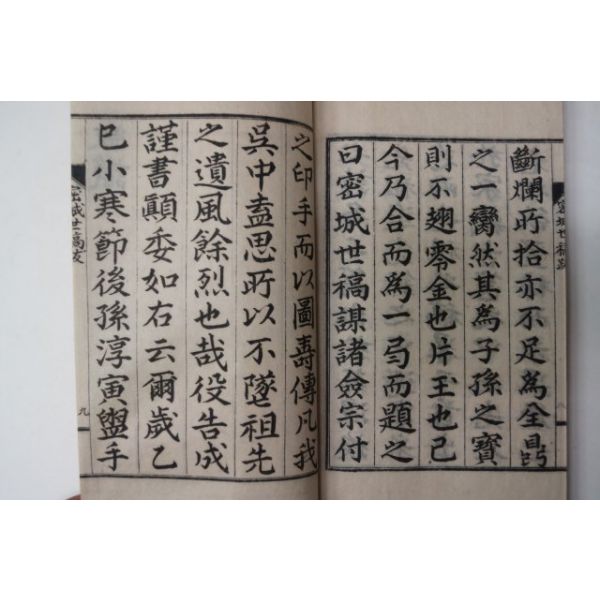 斷爛所拾亦不足為全鼎
之一臠然其為子孫之寶
則不翅零金也片玉也已
今乃合而為一局而題之
曰密城世稿謀諸僉宗付
之印手而以圖壽傳凡我
吳中盍思所以不墜祖先
之遺風餘烈也哉役告成
謹書顚委如右云爾歲乙
巳小寒節後孫淳寅盥手
密城世稿跋
九